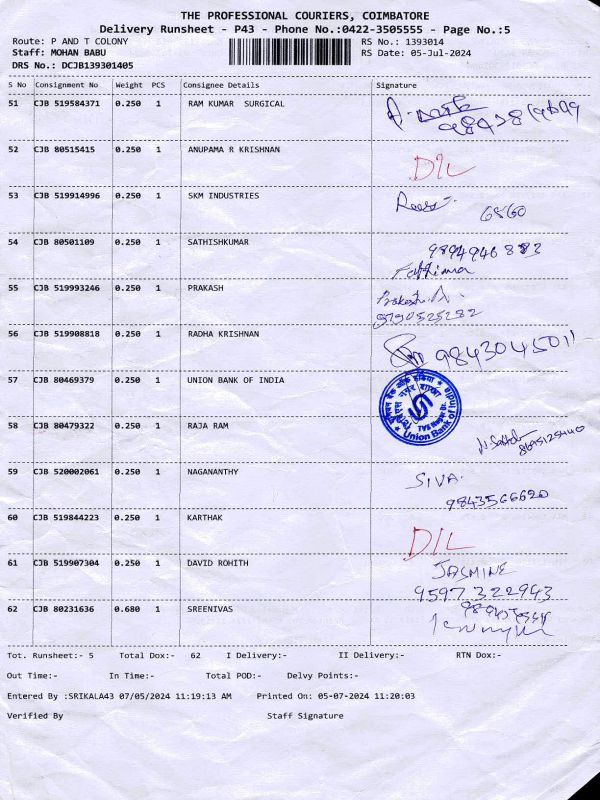 THE PROFESSIONAL COURIERS, COIMBATORE
Delivery Runsheet - P43 - Phone No.:0422-3505555 - Page No.:5
Route: P AND T COLONY RS No.: 1393014
Staff: MOHAN BABU RS Date: 05-Jul-2024
DRS No.: DCJB139301405
S No Consignment No Weight PCS Consignee Details Signature
51 CJB 519584371 0.250 1 RAM KUMAR SURGICAL
52 CJB 80515415 0.250 1 ANUPAMA R KRISHNAN D/L
53 CJB 519914996 0.250 1 SKM INDUSTRIES 6860
54 CJB 80501109 0.250 1 SATHISHKUMAR Fathima
55 CJB 519993246 0.250 1 PRAKASH Prakash.A. 9790525282
56 CJB 519908818 0.250 1 RADHA KRISHNAN 9843045011
57 CJB 80469379 0.250 1 UNION BANK OF INDIA Union Bank of India
58 CJB 80479322 0.250 1 RAJA RAM
59 CJB 520002061 0.250 1 NAGANANTHY SIVA. 9843566620
60 CJB 519844223 0.250 1 KARTHAK D/L
61 CJB 519907304 0.250 1 DAVID ROHITH JASMINE 9597322943
62 CJB 80231636 0.680 1 SREENIVAS
Tot. Runsheet:- 5 Total Dox:- 62 I Delivery:- II Delivery:- RTN Dox:-
Out Time:- In Time:- Total POD:- Delvy Points:-
Entered By :SRIKALA43 07/05/2024 11:19:13 AM Printed On: 05-07-2024 11:20:03
Verified By Staff Signature